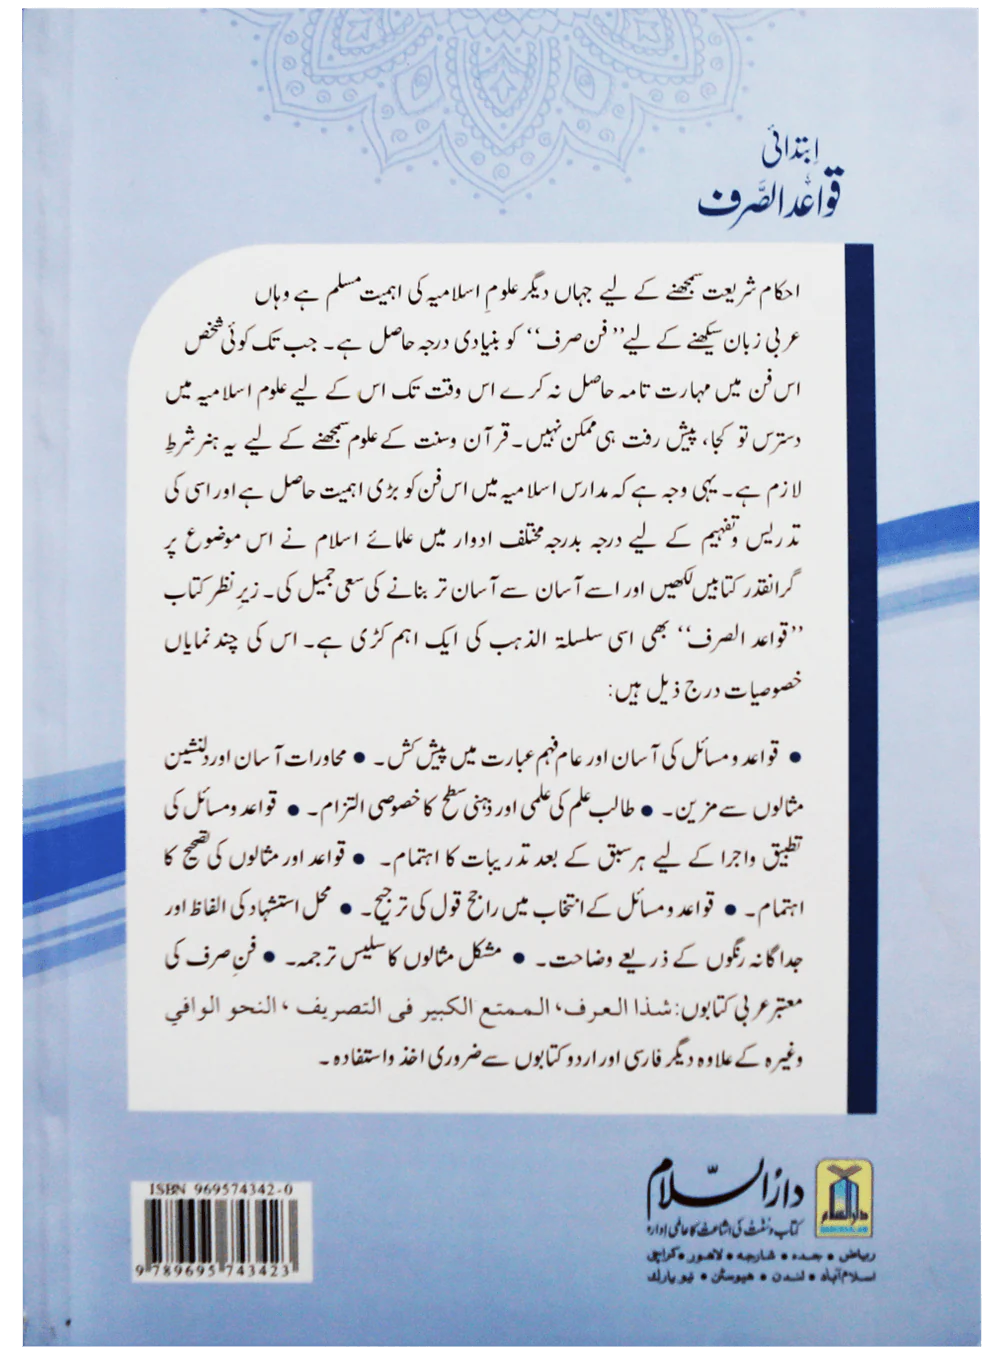 ابتدائی
قواعد الصَّرف
احکام شریعت سمجھنے کے لیے جہاں دیگر علومِ اسلامیہ کی اہمیت مسلم ہے وہاں
عربی زبان سیکھنے کے لیے ’’فن صرف‘‘ کو بنیادی درجہ حاصل ہے۔ جب تک کوئی شخص
اس فن میں مہارت تامہ حاصل نہ کرے اس وقت تک اس کے لیے علوم اسلامیہ میں
دسترس تو کجا، پیش رفت ہی ممکن نہیں۔ قرآن وسنت کے علوم سمجھنے کے لیے یہ ہنر شرطِ
لازم ہے۔ یہی وجہ ہے کہ مدارس اسلامیہ میں اس فن کو بڑی اہمیت حاصل ہے اور اسی کی
تدریس وتفہیم کے لیے درجہ بدرجہ مختلف ادوار میں علمائے اسلام نے اس موضوع پر
گرانقدر کتابیں لکھیں اور اسے آسان سے آسان تر بنانے کی سعی جمیل کی۔ زیرِ نظر کتاب
’’قواعد الصرف‘‘ بھی اسی سلسلۃ الذہب کی ایک اہم کڑی ہے۔ اس کی چند نمایاں
خصوصیات درج ذیل ہیں:
• قواعد و مسائل کی آسان اور عام فہم عبارت میں پیش کش۔ • محاورات آسان اور دلنشین
مثالوں سے مزین۔ • طالب علم کی علمی اور ذہنی سطح کا خصوصی التزام۔ • قواعد ومسائل کی
تطبیق واجرا کے لیے ہر سبق کے بعد تدریبات کا اہتمام۔ • قواعد اور مثالوں کی تصحیح کا
اہتمام۔ • قواعد ومسائل کے انتخاب میں راجح قول کی ترجیح۔ • محل استشہاد کی الفاظ اور
جداگانہ رنگوں کے ذریعے وضاحت۔ • مشکل مثالوں کا سلیس ترجمہ۔ • فنِ صرف کی
معتبر عربی کتابوں: شذا العرف، الممتع الكبير فى التصريف، النحو الوافي
وغیرہ کے علاوہ دیگر فارسی اور اردو کتابوں سے ضروری اخذ واستفادہ۔
دارُالسلّام
کتاب و سُنّت کی اشاعت کا عالمی ادارہ
ریاض • جدہ • شارجہ • لاھور • کراچی
اسلام آباد • لندن • ھیوسٹن • نیو یارک
دارالسلام
DARUSSALAM
ISBN 969574342-0
9 789695 743423